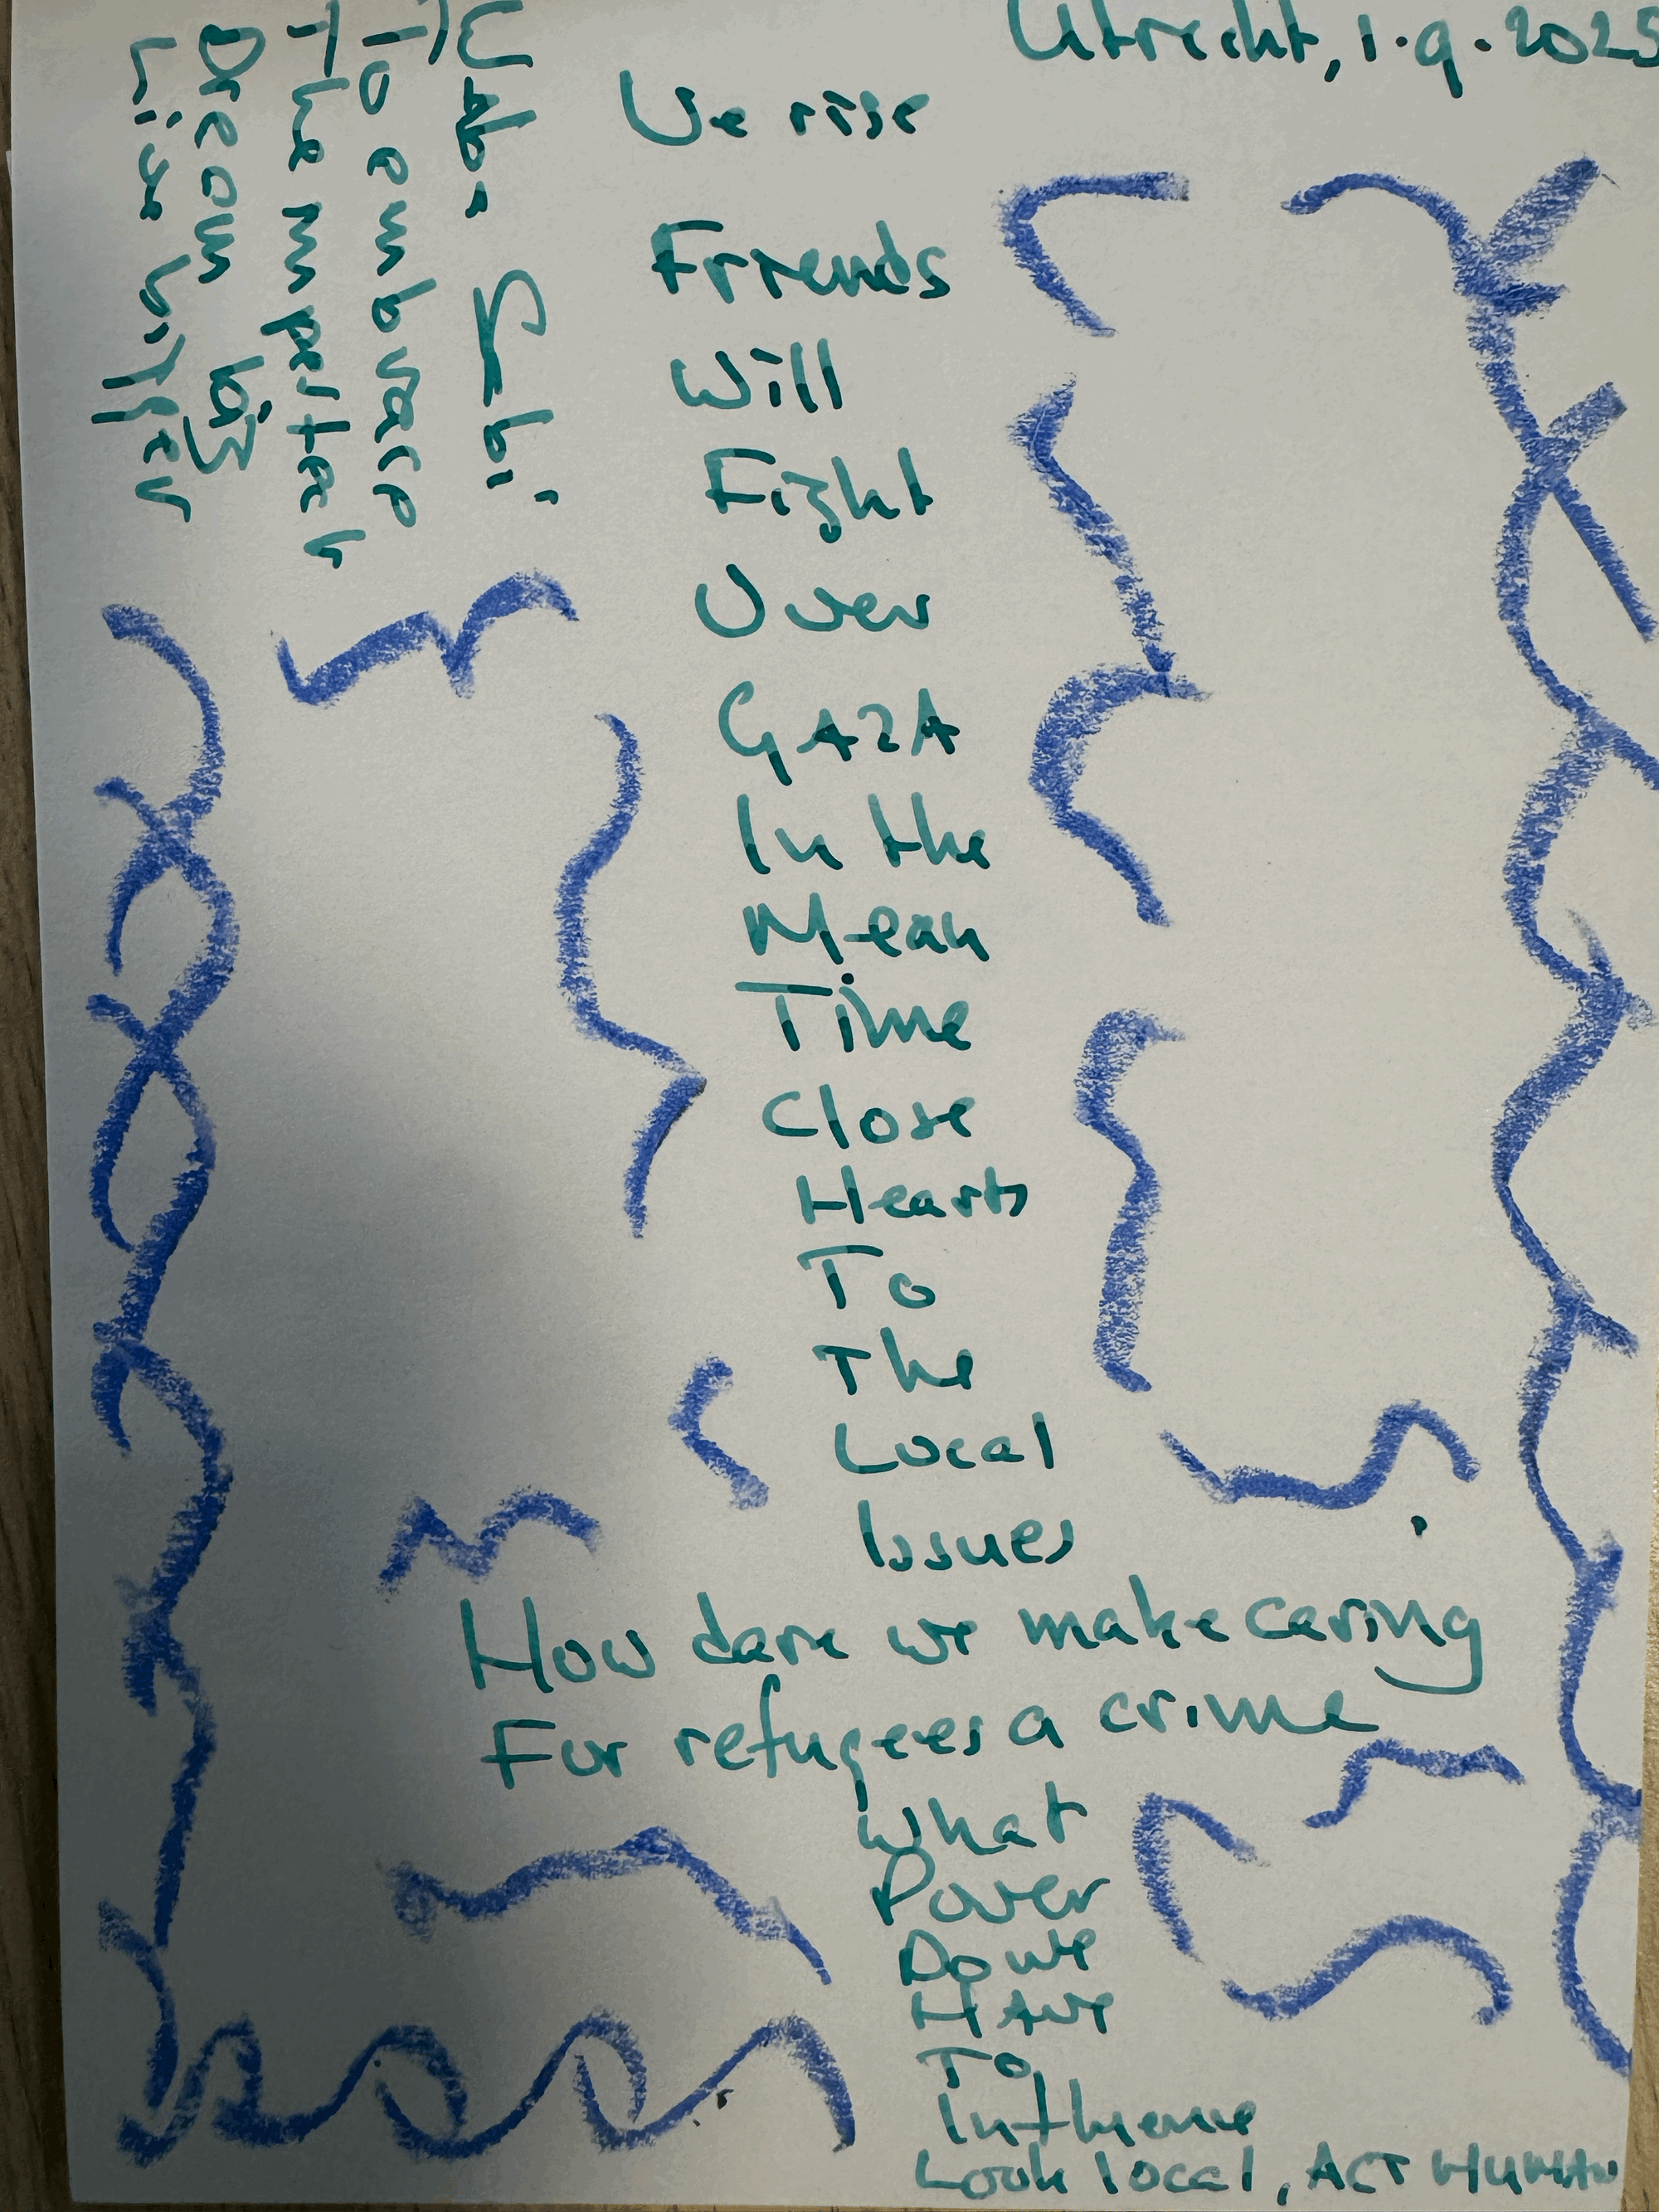 Utrecht, 1.9.2025
We rise
Friends
Will
Fight
Over
GAZA
In the
Mean
Time
Close
Hearts
To
The
Local
Issues
How dare we make caring
For refugees a crime
What
Power
Do we
HAVE
To
Influence
Look local, ACT HUMAN
Wabi Sabi
To embrace
The imperfect
Dream big
Live